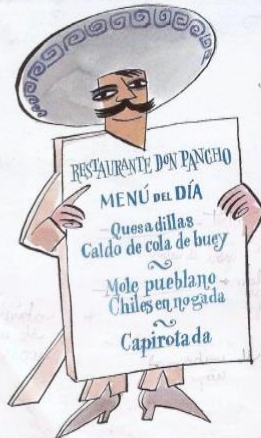 RESTAURANTE DON PANCHO
MENÚ DEL DÍA
Quesadillas
Caldo de cola de buey
Mole pueblano
Chiles en nogada
Capirotada